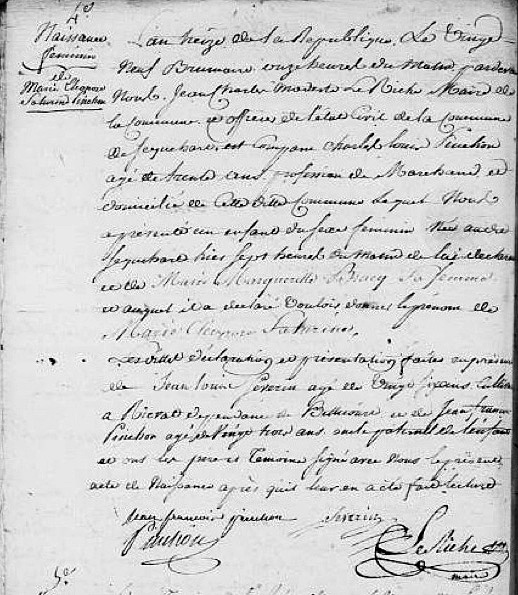 4e
Naissance
féminin
de
Marie Eléopore
Saturine Pinchon
L'an treize de la Republique, Le Vingt
Neuf Brumaire onze heures du Matin pardevant
Nous, Jean Charles Modeste Le Riche Maire de
la Commune et officier de l'état Civil de la Commune
de Sequehart, est Comparu Charles Louis Pinchon
agé de trente ans, profession de Marchand et
domicilié de Cette ditte Commune Lequel Nous
a presenté un enfant du sexe feminin Née audit
Sequehart hier sept heures du Matin de lui declarant
et de Marie Marguerite Bracq Sa femme
et auquel il a declaré Vouloir donner le prénom de
Marie Eléopore Saturine,
Lesdittes declaration et présentation faites en présence
de Jean Louis Severin agé de Vingt Six ans Cultiv
a Riévral dependance de Bellicourt et de Jean francois
Pinchon agé de Vingt trois ans oncle paternel de l'enfant
et ont les pere et Temoins Signé avec Nous le présent
acte de Naissance après qu'il leur en a été fait lecture
Jean francois pinchon Severin
Pinchon
Le Riche
maire
5e